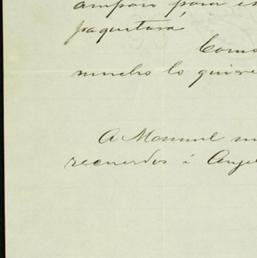 amparo para es
paquetara
Como
mucho lo quiere
A Manuel mu
recuerdos á Angel